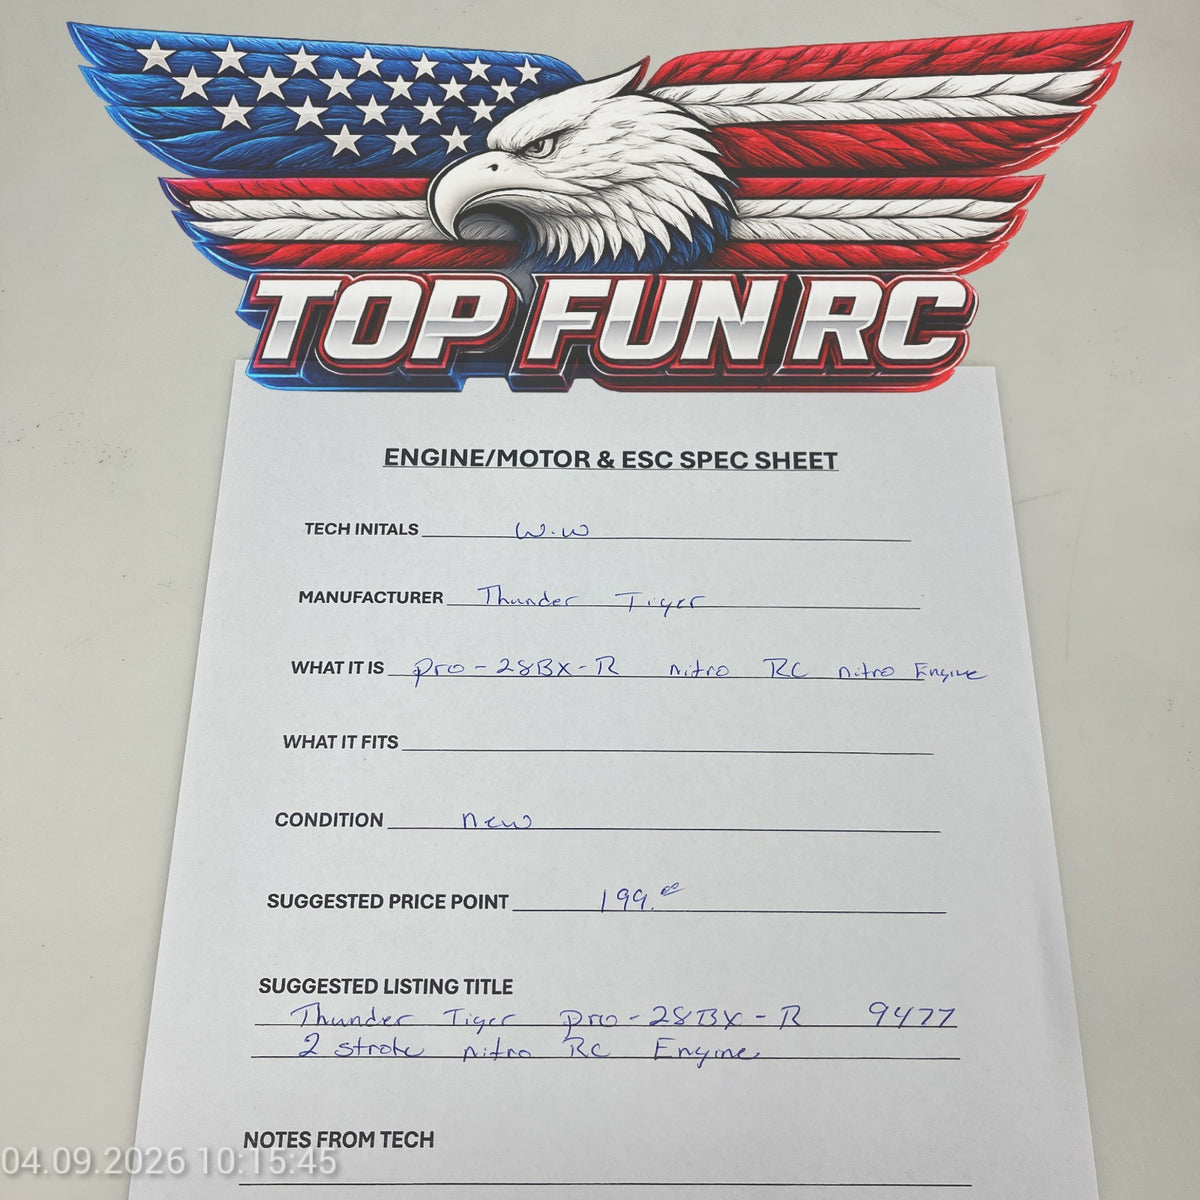 TOP FUN RC
ENGINE/MOTOR & ESC SPEC SHEET
TECH INITALS W.W
MANUFACTURER Thunder Tiger
WHAT IT IS pro-28BX-R nitro RC nitro Engine
WHAT IT FITS
CONDITION new
SUGGESTED PRICE POINT 199.00
SUGGESTED LISTING TITLE
Thunder Tiger pro-28BX-R 9477
2 stroke nitro RC Engine
NOTES FROM TECH
04.09.2026 10:15:45